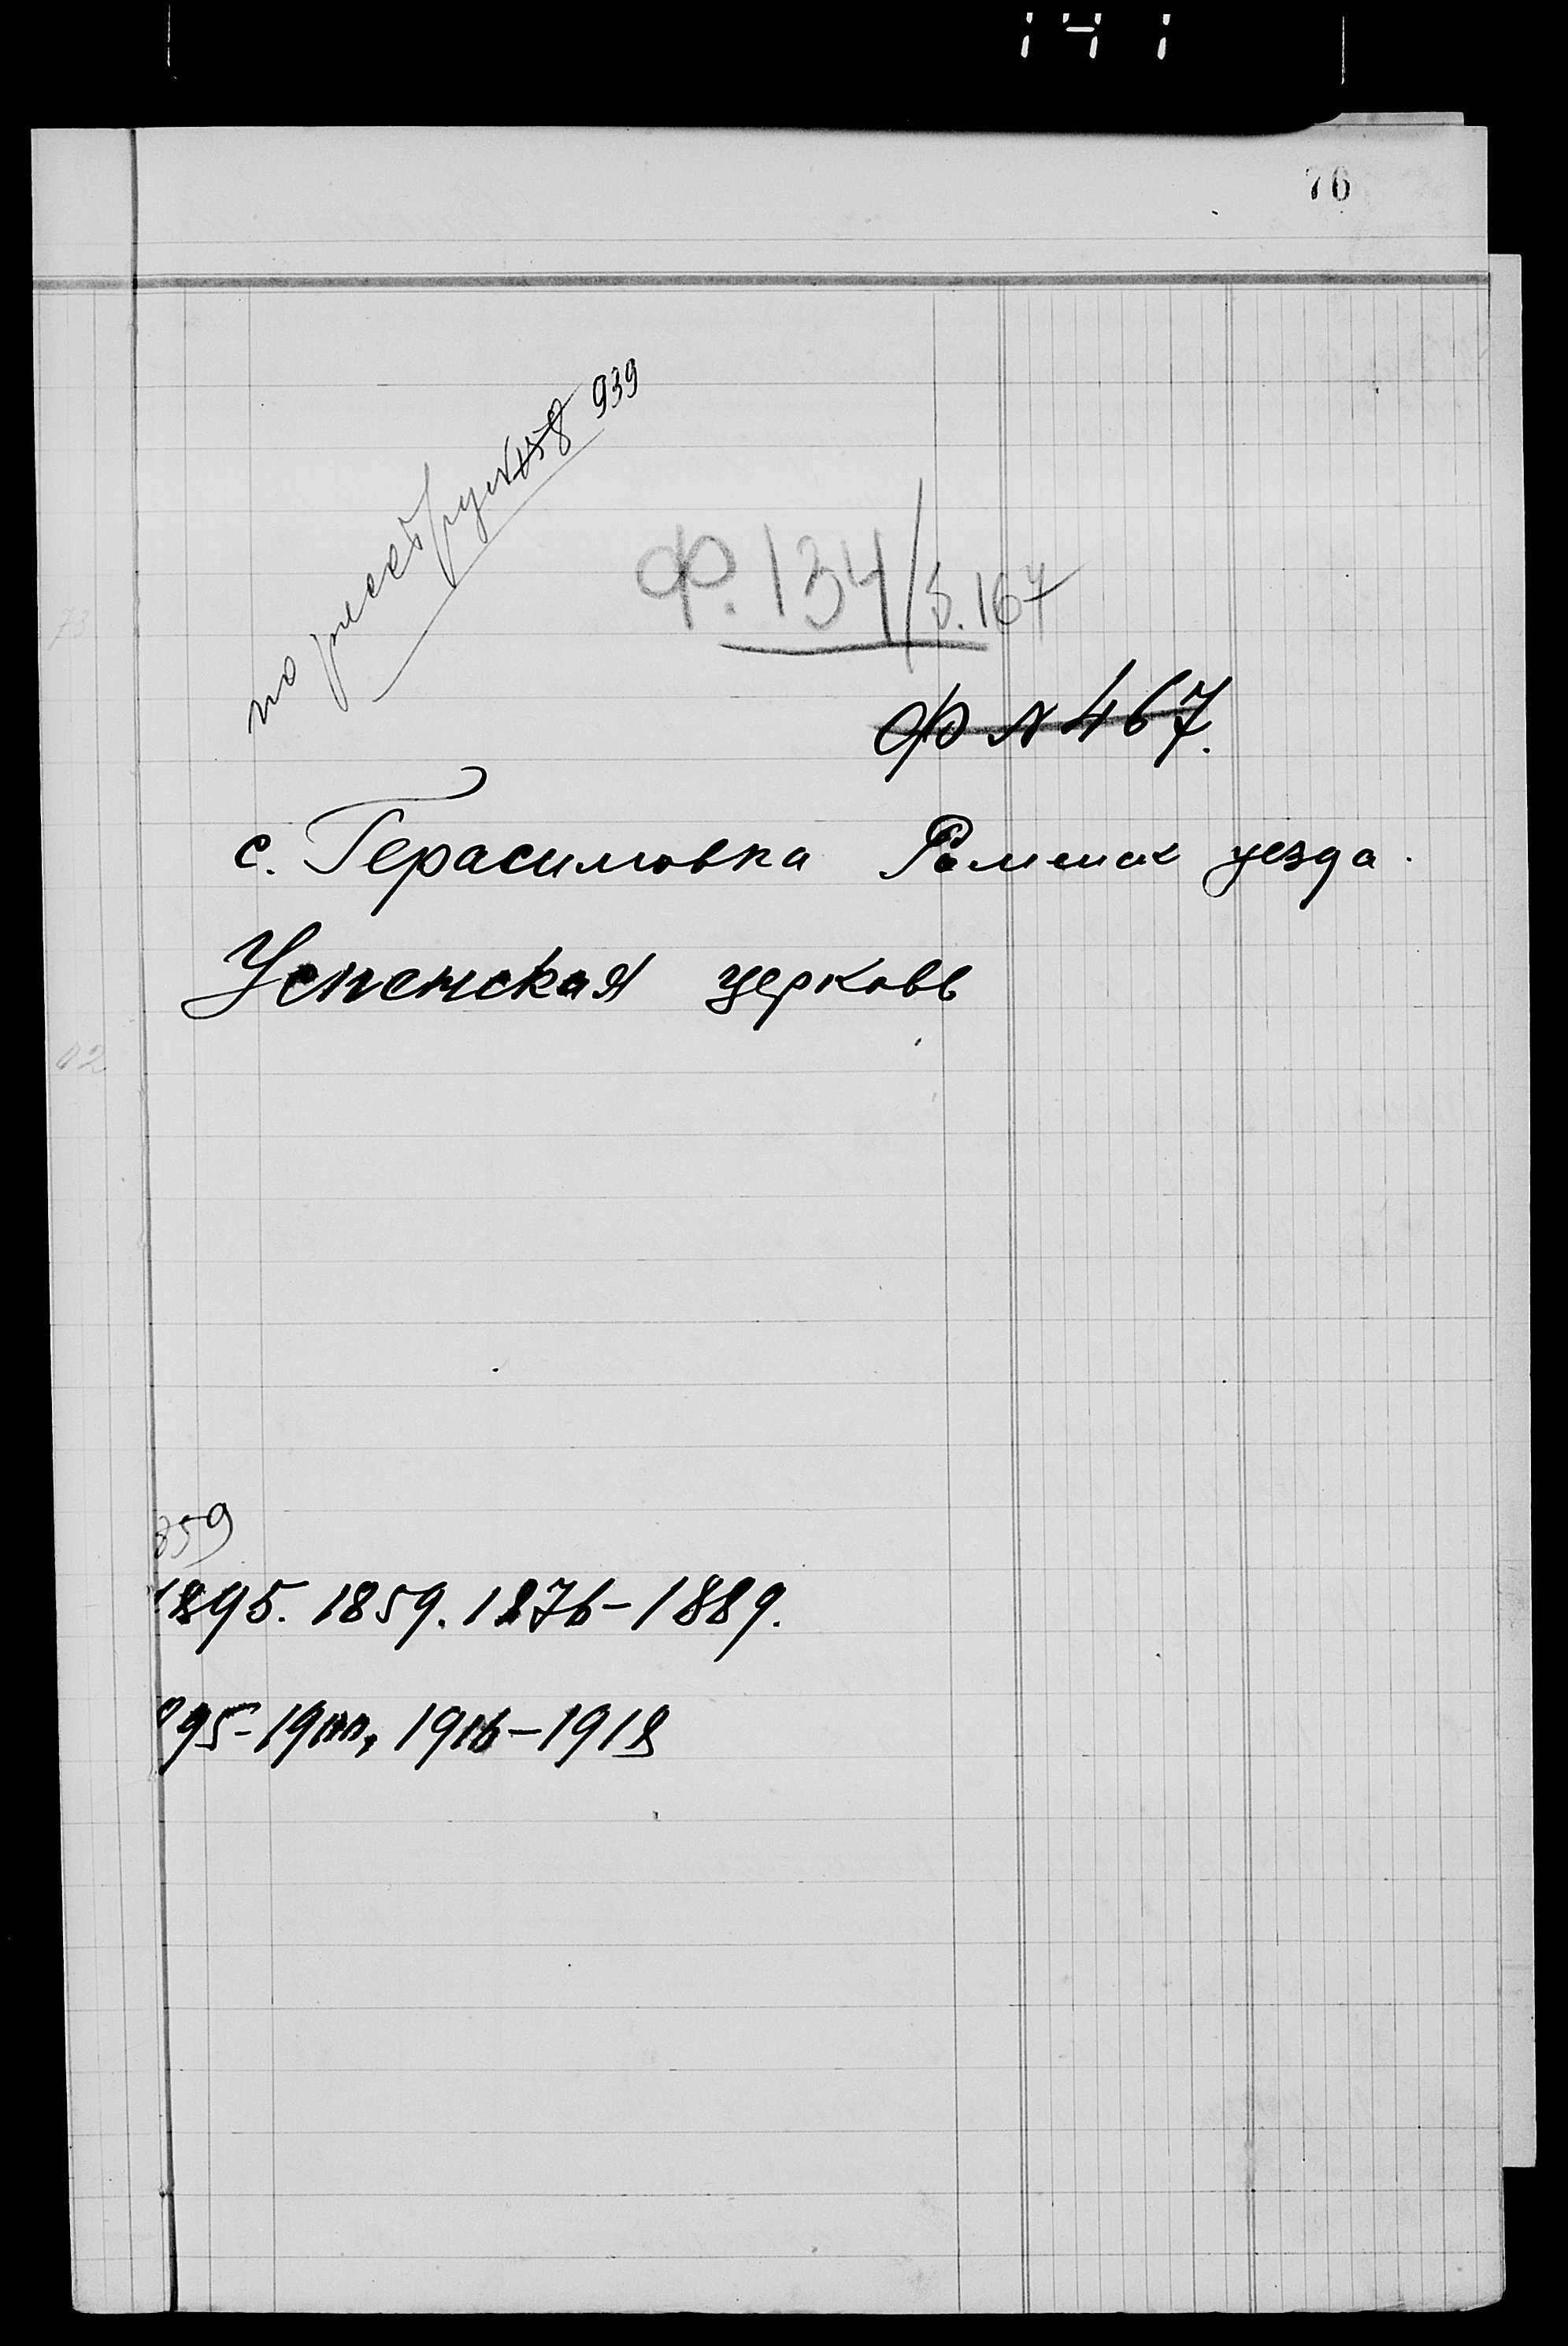 76
по реестру № 158 939
Ф. 134/S. 167
Ф № 467.
с. Герасимовка Роменск уезда.
Успенская церковь
859
1895. 1859. 1876-1889.
895-1900, 1916-1918